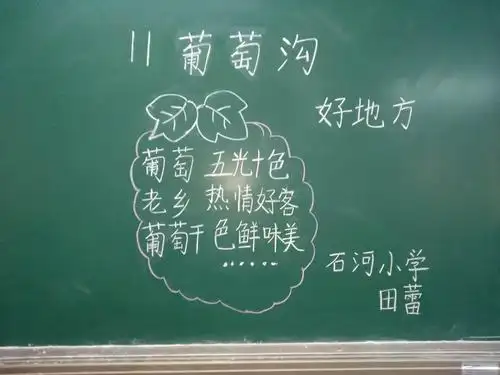 11 葡萄沟
好地方
葡萄 五光十色
老乡 热情好客
葡萄干 色鲜味美
......
石河小学
田蕾